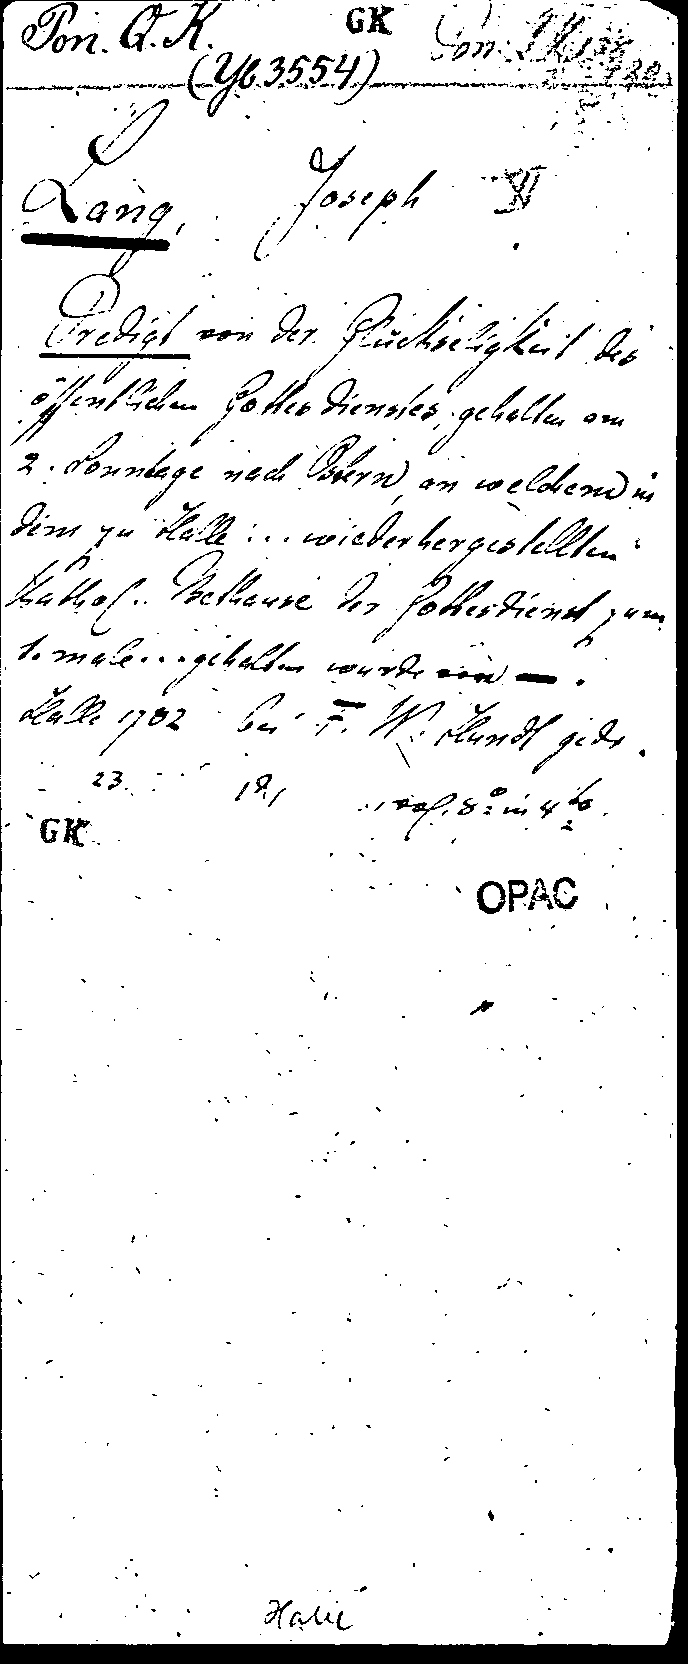 Pon. Q. K. GK Pon.
(Yb 3554)
Lang, Joseph
Predigt von der Glückseligkeit des
öffentlichen Gottesdienstes, gehalten am
2. Sonntage nach Ostern, an welchem in
dem zu Halle ... wiederhergestellten
Kathol. Bethause der Gottesdienst zum
1. male ... gehalten wurde von — .
Halle 1782 bei F. W. Hundt gedr.
23. 8° in 4to.
GK
OPAC
Halle